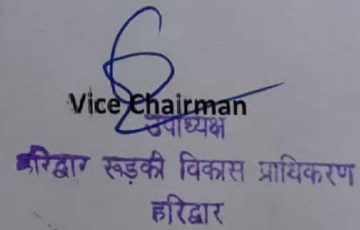 Vice Chairman
उपाध्यक्ष
हरिद्वार रूड़की विकास प्राधिकरण
हरिद्वार